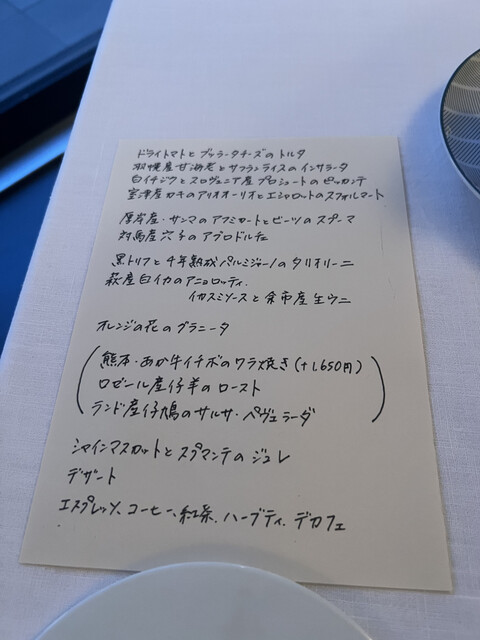 ドライトマトとブッラータチーズのトルタ
羽幌産甘海老とサフランライスのインサラータ
白イチジクとスロヴェニア産プロシュートのピッカンテ
室津産カキのアリオオーリオとエシャロットのスフォルマート
厚岸産・サンマのアフミカートとビーツのスプーマ
対馬産穴子のアグロドルチェ
黒トリフと4年熟成パルミジャーノのタリオリーニ
萩産白イカのアニョロッティ
イカスミソースと余市産生ウニ
オレンジの花のグラニータ
熊本・あか牛イチボのワラ焼き(+1,650円)
ロゼール産仔羊のロースト
ランド産仔鳩のサルサ・ペヴェラーダ
シャインマスカットとスプマンテのジュレ
デザート
エスプレッソ、コーヒー、紅茶、ハーブティ、デカフェ